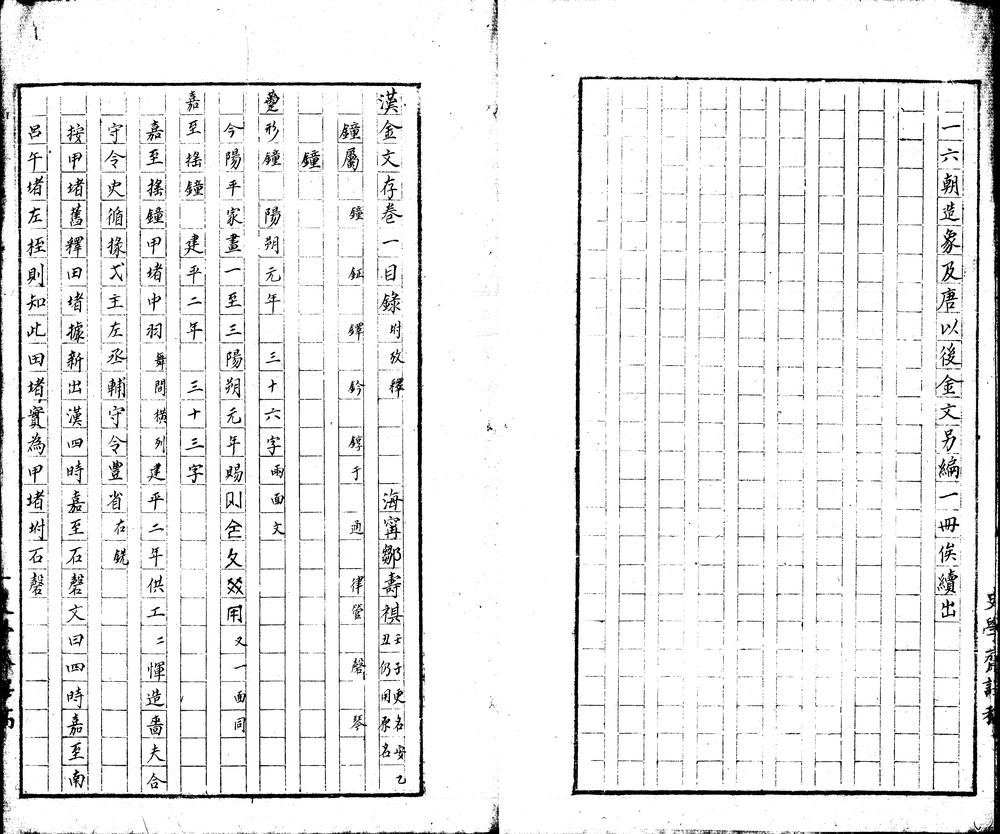 一六朝造象及唐以後金文另編一冊俟續出
漢金文存卷一目錄 附攷釋 海寧鄒壽祺 壬子更名安乙丑仍用原名
鐘屬 鐘 鉦 鐸 鈴 錞于 通 律管 磬 琴
鐘
形鐘 陽朔元年 三十六字 兩面文
今陽平家畫一至三陽朔元年賜 用 又一面同
嘉至搖鐘 建平二年 三十三字
嘉至搖鐘甲堵中羽 舞間橫列 建平二年供工二惲造嗇夫合
守令史循掾弋主左丞輔守令豐省 在銑
按甲堵舊釋田堵據新出漢四時嘉至石磬文曰四時嘉至南
呂午堵左桎則知此田堵實為甲堵坿石磬